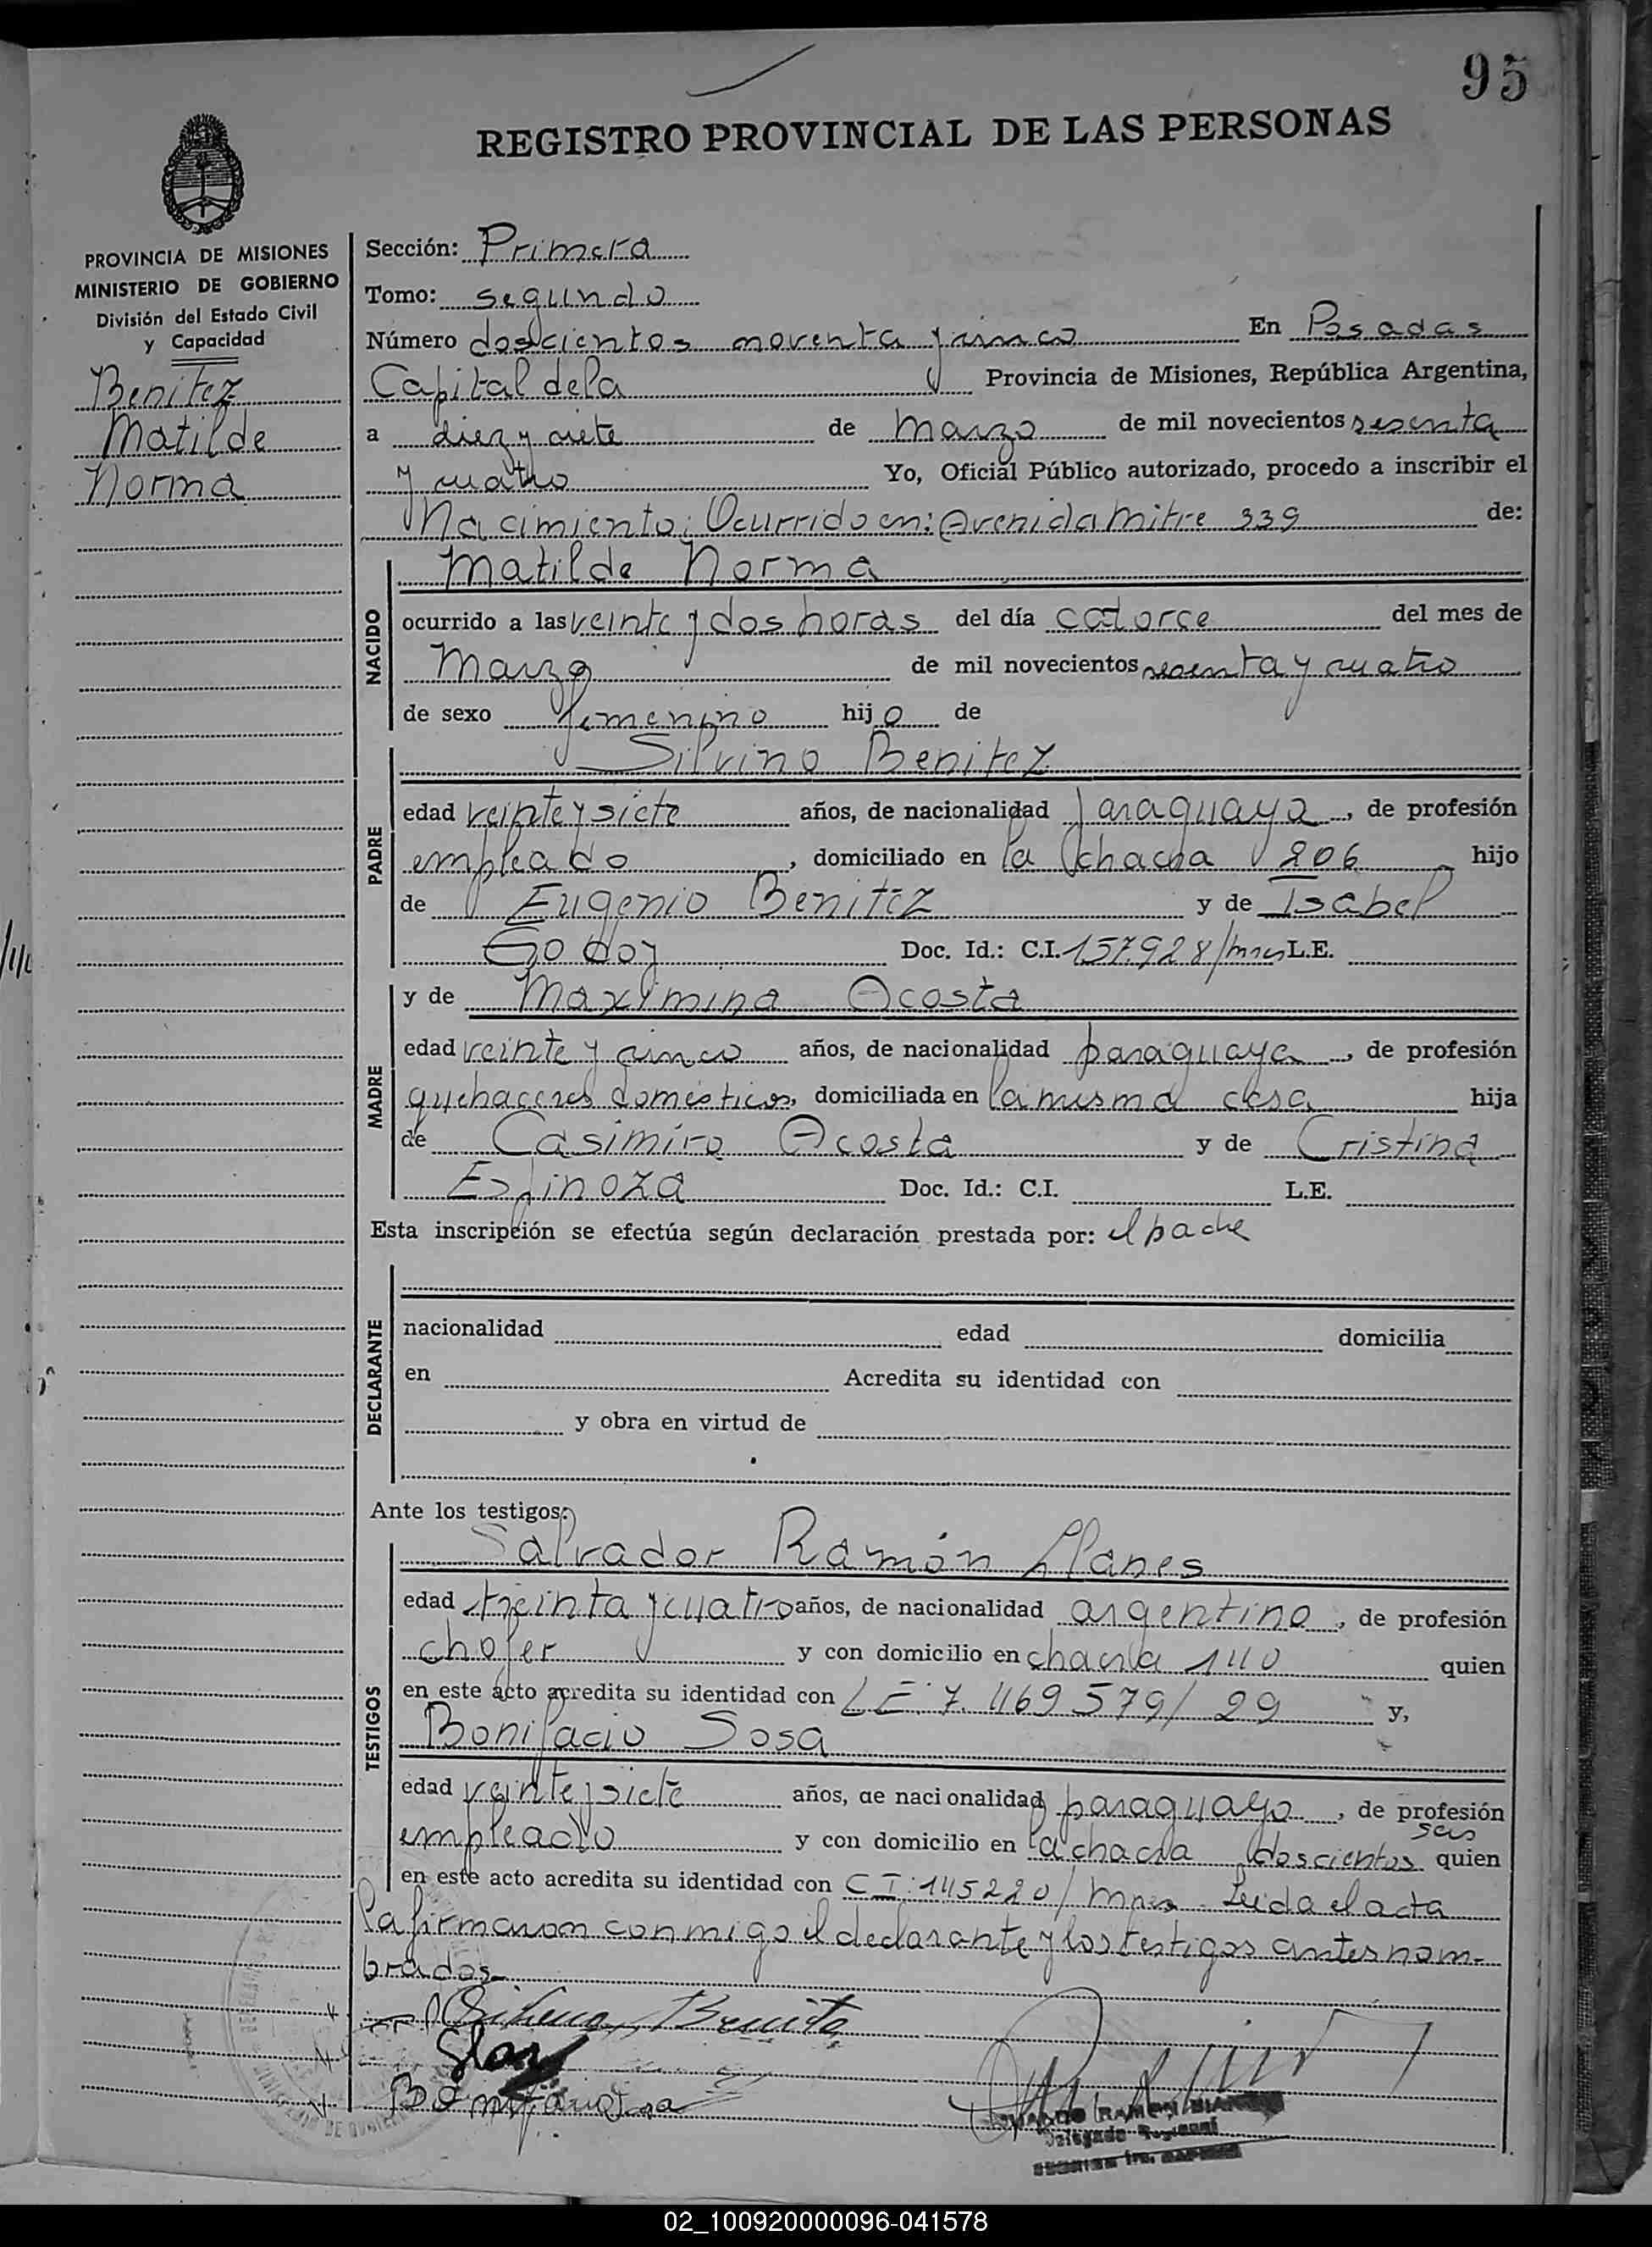 95
REGISTRO PROVINCIAL DE LAS PERSONAS
PROVINCIA DE MISIONES
MINISTERIO DE GOBIERNO
División del Estado Civil
y Capacidad
Benitez
Matilde
Norma
Sección: Primera
Tomo: segundo
Número doscientos noventa y cinco En Posadas
Capital de la Provincia de Misiones, República Argentina,
a diez y siete de Marzo de mil novecientos sesenta
y cuatro Yo, Oficial Público autorizado, procedo a inscribir el
Nacimiento; Ocurrido en: Avenida Mitre 339 de:
NACIDO
Matilde Norma
ocurrido a las veinte y dos horas del día catorce del mes de
Marzo de mil novecientos sesenta y cuatro
de sexo femenino hijo de
PADRE
Silvino Benitez
edad veinte y siete años, de nacionalidad paraguaya, de profesión
empleado, domiciliado en la chacra 206 hijo
de Eugenio Benitez y de Isabel
Godoy Doc. Id.: C.I. 157.928/mnes L.E.
MADRE
y de Maximina Acosta
edad veinte y cinco años, de nacionalidad paraguaya, de profesión
quehaceres domésticos, domiciliada en la misma casa hija
de Casimiro Acosta y de Cristina
Espinoza Doc. Id.: C.I. L.E.
Esta inscripción se efectúa según declaración prestada por: el padre
DECLARANTE
nacionalidad edad domicilia
en Acredita su identidad con
y obra en virtud de
Ante los testigos:
TESTIGOS
Salvador Ramón Llanes
edad treinta y cuatro años, de nacionalidad argentino, de profesión
chofer y con domicilio en chacra 140 quien
en este acto acredita su identidad con L E. 7.469579/29 y,
Bonifacio Sosa
edad veinte y siete años, de nacionalidad paraguayo, de profesión
empleado y con domicilio en la chacra doscientos seis quien
en este acto acredita su identidad con C I: 145220/mnes Leida el acta
la firmaron conmigo el declarante y los testigos antes nom-
brados-
Silvino Benitez
Bonifacio Sosa
RAMON
Delegado Regional
02_100920000096-041578